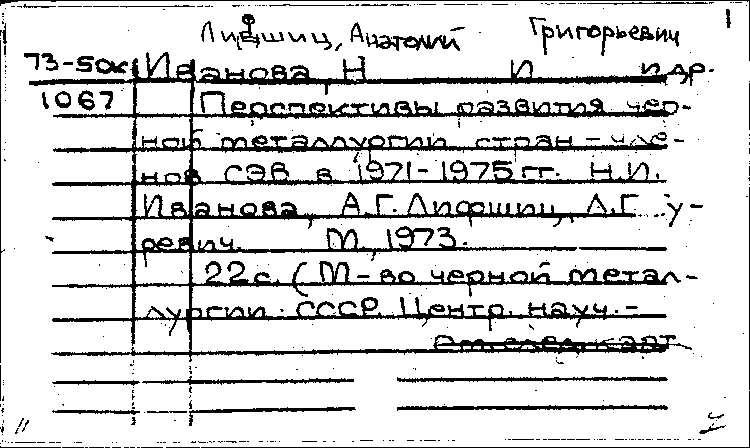 1
Лифшиц, Анатолий Григорьевич
73-5окс Иванова, Н И и др.
1067 Перспективы развития чер-
ной металлургии стран - чле-
нов СЭВ в 1971-1975 гг. Н.И.
Иванова, А.Г. Лифшиц, А.Г. у-
ревич. М., 1973.
22 с. (М-во черной метал-
лургии СССР. Центр. науч.-
См. след. карт